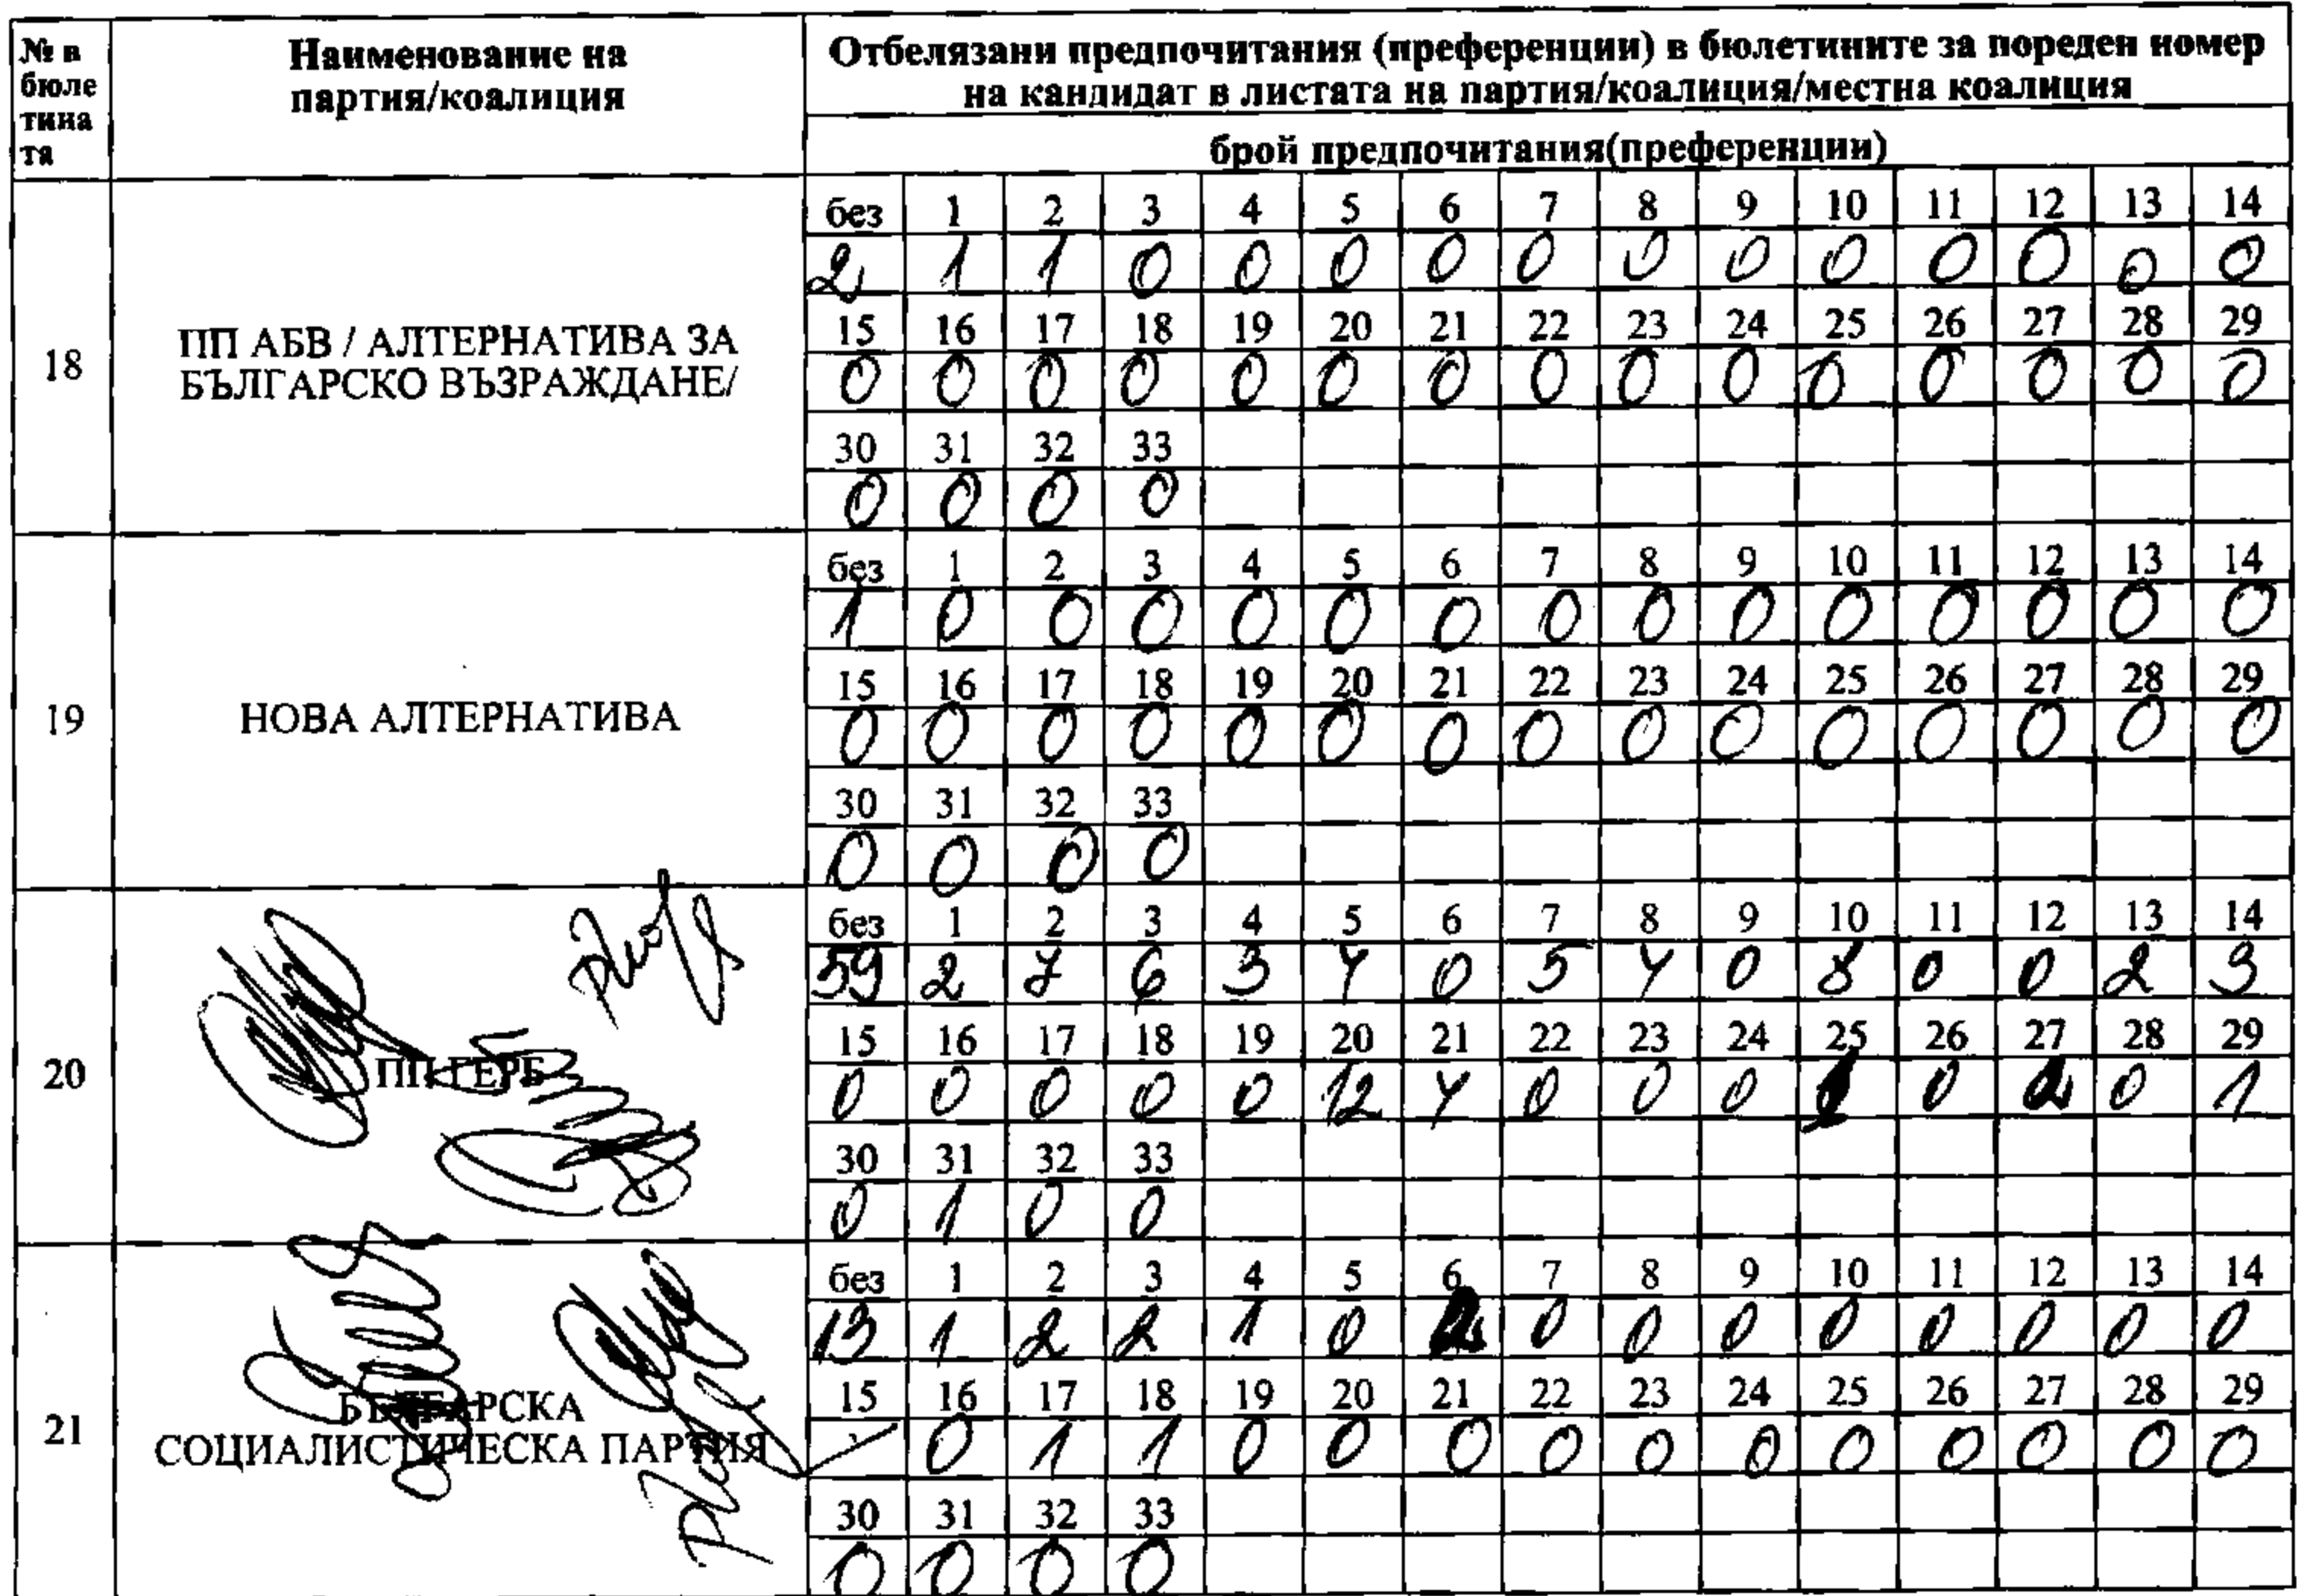 № в бюле тина та
Наименование на партия/коалиция
Отбелязани предпочитания (преференции) в бюлетините за пореден номер на кандидат в листата на партия/коалиция/местна коалиция
брой предпочитания(преференции)
18
ПП АБВ / АЛТЕРНАТИВА ЗА БЪЛГАРСКО ВЪЗРАЖДАНЕ/
без 1 2 3 4 5 6 7 8 9 10 11 12 13 14
2 1 1 0 0 0 0 0 0 0 0 0 0 0 0
15 16 17 18 19 20 21 22 23 24 25 26 27 28 29
0 0 0 0 0 0 0 0 0 0 0 0 0 0 0
30 31 32 33
0 0 0 0
19
НОВА АЛТЕРНАТИВА
без 1 2 3 4 5 6 7 8 9 10 11 12 13 14
1 0 0 0 0 0 0 0 0 0 0 0 0 0 0
15 16 17 18 19 20 21 22 23 24 25 26 27 28 29
0 0 0 0 0 0 0 0 0 0 0 0 0 0 0
30 31 32 33
0 0 0 0
20
ПП ГЕРБ
без 1 2 3 4 5 6 7 8 9 10 11 12 13 14
59 2 7 6 3 4 0 5 4 0 8 0 0 2 3
15 16 17 18 19 20 21 22 23 24 25 26 27 28 29
0 0 0 0 0 12 4 0 0 0 1 0 2 0 1
30 31 32 33
0 1 0 0
21
БЪЛГАРСКА СОЦИАЛИСТИЧЕСКА ПАРТИЯ
без 1 2 3 4 5 6 7 8 9 10 11 12 13 14
13 1 2 2 1 0 2 0 0 0 0 0 0 0 0
15 16 17 18 19 20 21 22 23 24 25 26 27 28 29
0 1 1 0 0 0 0 0 0 0 0 0 0 0
30 31 32 33
0 0 0 0